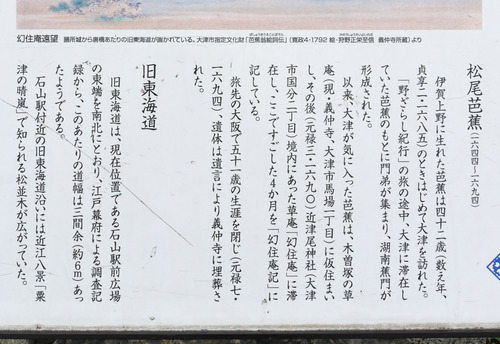 幻住庵遠望 膳所城から唐橋あたりの旧東海道が描かれている。大津市指定文化財「芭蕉翁絵詞伝」(寛政4・1792 絵・狩野正栄至信 義仲寺所蔵)より
松尾芭蕉(一六四四~一六九四)
伊賀上野に生れた芭蕉は四十二歳(数え年、
貞享二・一六八五)のときはじめて大津を訪れた。
「野ざらし紀行」の旅の途中、大津に滞在し
ていた芭蕉のもとに門弟が集まり、湖南蕉門が
形成された。
以来、大津が気に入った芭蕉は、木曽塚の草
庵(現・義仲寺、大津市馬場一丁目)に仮住まい
し、その後(元禄三・一六九〇)近津尾神社(大津
市国分二丁目)境内にあった草庵「幻住庵」に滞
在し、ここですごした4か月を「幻住庵記」に
記している。
旅先の大阪で五十一歳の生涯を閉じ(元禄七・
一六九四)、遺体は遺言により義仲寺に埋葬さ
れた。
旧東海道
旧東海道は、現在位置である石山駅前広場
の東端を南北にとおり、江戸幕府による調査記
録から、このあたりの道幅は三間余(約6m)あっ
たようである。
石山駅付近の旧東海道沿いには近江八景「粟
津の晴嵐」で知られる松並木が広がっていた。